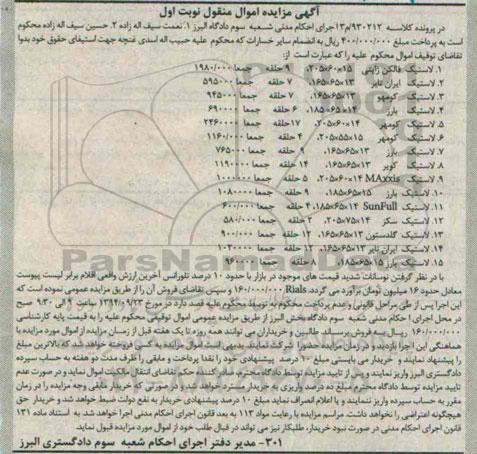 آگهی مزایده اموال منقول نوبت اول
در پرونده کلاسه ۹۳۰۲۱۲/م۱۳ اجرای احکام مدنی شعبه سوم دادگاه البرز ۱. نعمت سیف اله زاده ۲. حسین سیف اله زاده محکوم
است به پرداخت مبلغ ۴۰۰/۰۰۰/۰۰۰ ریال به انضمام سایر خسارات که محکوم علیه حبیب اله اسدی غنچه جهت استیفای حقوق خود بدوا
تقاضای توقیف اموال محکوم علیه را که عبارت است از:
۱. لاستیک فالکن ژاپنی ۱۵×۶۰×۲۰۵، ۹ حلقه جمعا ۱۹۸۰/۰۰۰
۲. لاستیک ایران تایر ۱۳×۶۵×۱۶۵، ۷ حلقه جمعا ۵۹۵۰۰۰
۳. لاستیک کومهو ۱۳×۶۵×۱۶۵، ۷ حلقه جمعا ۹۴۵۰۰۰
۴. لاستیک بارز ۱۴×۶۵×۱۸۵، ۶ حلقه جمعا ۶۹۰۰۰۰
۵. لاستیک کومهر ۱۴×۶۰×۲۰۵، ۱۷حلقه جمعا ۲۴۶۰۰۰۰
۶. لاستیک کومهر ۱۵×۵۵×۲۰۵، ۴ حلقه جمعا ۱۱۶۰/۰۰۰
۷. لاستیک بارز ۱۳×۶۵×۱۶۵، ۹ حلقه جمعا ۷۶۵۰۰۰
۸. لاستیک کویر ۱۳×۶۵×۱۶۵، ۱۴ حلقه جمعا ۱۱۹۰۰۰۰
۹. لاستیک MAxxis ۱۴×۶۰×۲۰۵، ۵ حلقه جمعا ۱۰۰۰۰۰۰
۱۰. لاستیک بارز ۱۵×۶۵×۱۸۵، ۹ حلقه جمعا ۱۰۸۰۰۰۰
۱۱. لاستیک SunFull ۱۴×۶۵×۱۸۵، ۴ حلقه جمعا ۶۰۰/۰۰۰
۱۲. لاستیک سکز ۱۴×۷۵×۲۰۵، ۲ حلقه جمعا ۵۸۰/۰۰۰
۱۳. لاستیک گلدستون ۱۳×۶۵×۱۶۵، ۱۲ حلقه جمعا ۹۰۰/۰۰۰
۱۴. لاستیک ایران تایر ۱۳×۶۵×۱۶۵، ۱۲ حلقه جمعا ۱۰۲۰۰۰۰
۱۵. لاستیک بارز ۱۵×۶۵×۱۸۵، ۸ حلقه جمعا ۹۶۰۰۰۰
با در نظر گرفتن نوسانات شدید قیمت های موجود در بازار با حدود ۱۰ درصد تلورانس آخرین ارزش واقعی اقلام برابر لیست پیوست
معادل حدود ۱۶ میلیون تومان برآورد می گردد. Rials ۱۶۰/۰۰۰/۰۰۰ و سپس تقاضای فروش آن را از طریق مزایده عمومی نموده است که
این اجرا پس از طی مراحل قانونی و عدم پرداخت محکوم به توسط محکوم علیه قصد دارد در مورخ ۱۳۹۴/۰۹/۲۳ ساعت ۹ الی ۹:۳۰ صبح
در محل اجرای احکام مدنی شعبه سوم دادگاه بخش البرز از طریق مزایده عمومی اموال توقیفی محکوم علیه را به قیمت پایه کارشناسی
۱۶۰/۰۰۰/۰۰۰ ریال به فروش برساند. طالبین و خریداران می توانند همه روزه تا یک هفته قبل از زمان مزایده از اموال مورد مزایده با
هماهنگی این اجرا بازدید و در زمان مزایده حضورا شرکت نمایند. بدیهی است اموال مزایده به کسی فروخته خواهد شد که بالاترین مبلغ
را پیشنهاد نمایند و خریدار می بایستی مبلغ ۱۰ درصد پیشنهادی خود را نقدا پرداخت و مابقی را ظرف مدت دو هفته به حساب سپرده
دادگستری البرز واریز نمایند و پس از تایید مزایده توسط دادگاه محترم حکم تقاضای انتقال مالکیت اموال نماید و در صورت عدم
تایید مزایده توسط دادگاه محترم مبلغ ده درصد واریزی به خریدار مسترد خواهد شد و در صورتی که خریدار مابقی وجه مزایده را در زمان
مقرر به حساب سپرده واریز ننمایند و یا اعلام انصراف نماید مبلغ ۱۰ درصد پیشنهادی خریدار به نفع دولت ضبط خواهد شد و خریدار حق
هیچگونه اعتراضی را نخواهد داشت. مراسم مزایده با رعایت مواد ۱۱۳ به بعد قانون اجرای احکام مدنی اجرا خواهد شد. به استناد ماده ۱۳۱
قانون اجرای احکام مدنی در صورت نبود خریدار، طلبکار نیز می تواند در قبال طلب خود از اموال مورد مزایده قبول نماید.
۳۰۱- مدیر دفتر اجرای احکام شعبه سوم دادگستری البرز
ParsNamadData